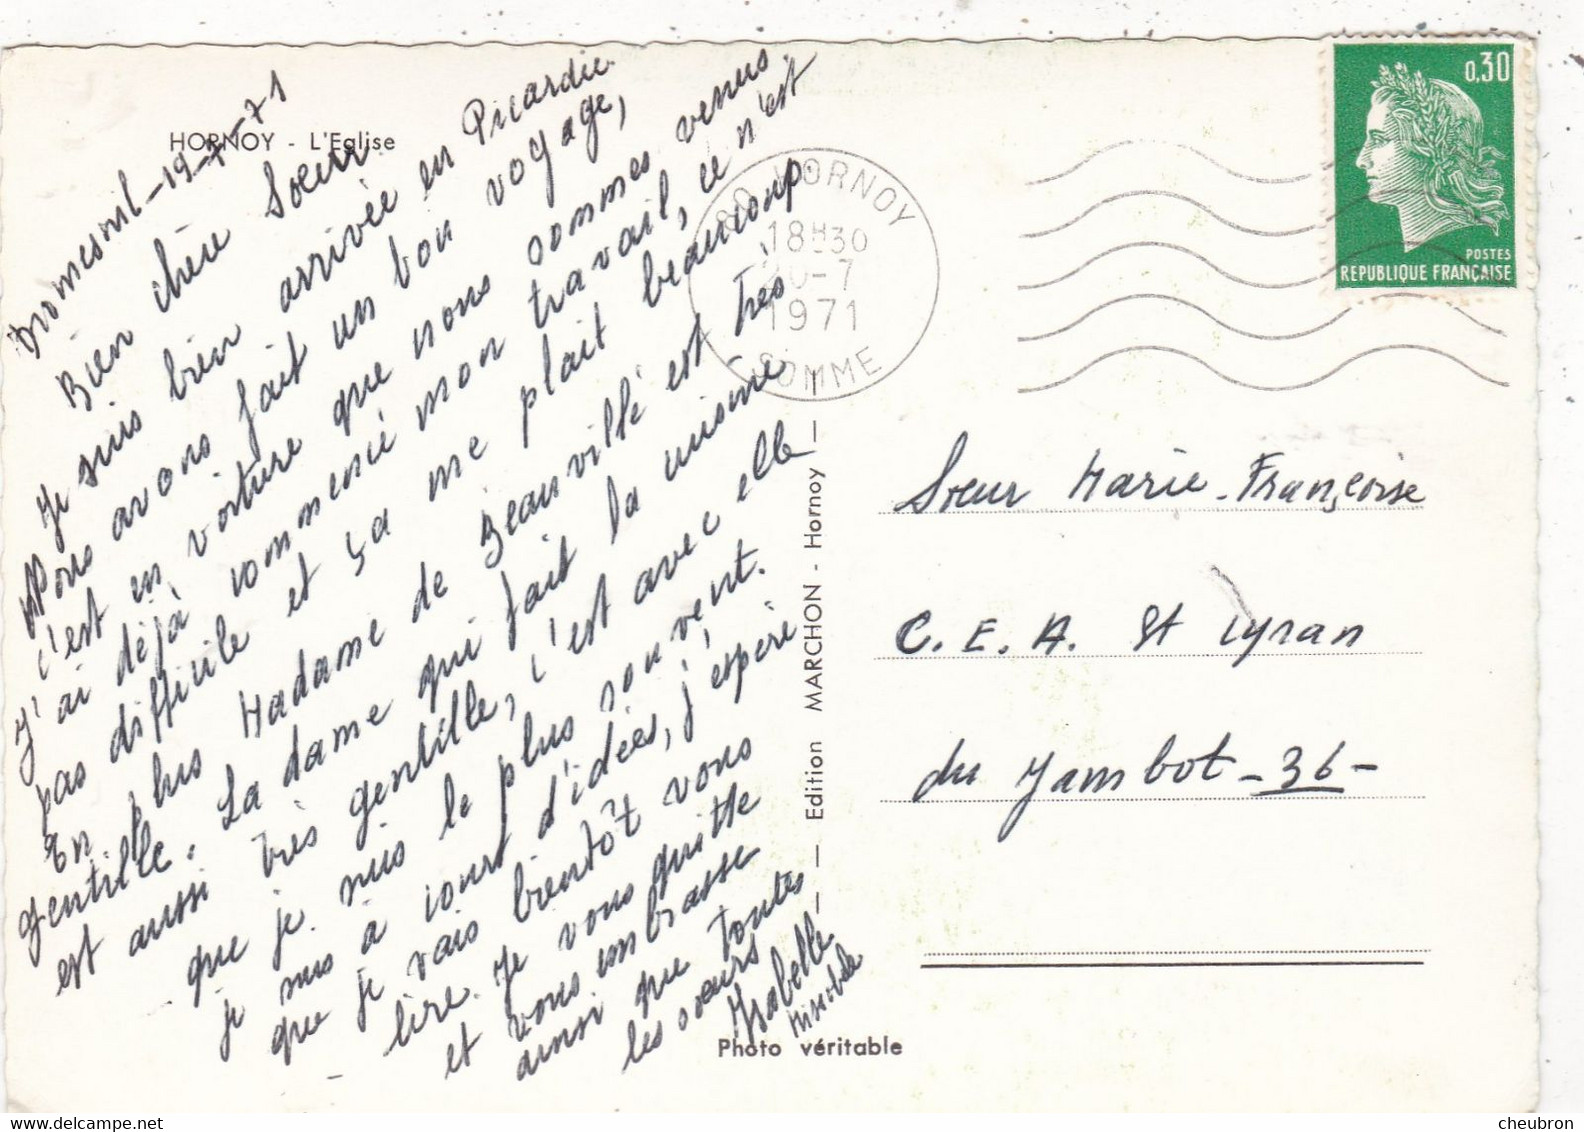 HORNOY - L'Eglise
19-7-71
Bien chère Soeur
Je suis bien arrivée en Picardie
Nous avons fait un bon voyage,
c'est en voiture que nous sommes venus
J'ai déjà commencé mon travail, ce n'est
pas difficile et ça me plait beaucoup
En plus Madame de Beauvillé est très
gentille. La dame qui fait la cuisine
est aussi très gentille, c'est avec elle
que je suis le plus souvent.
je suis à court d'idées, j'espère
que je vais bientôt vous
lire. Je vous quitte
et vous embrasse
ainsi que toutes
les soeurs
Isabelle
Photo véritable
Edition MARCHON - Hornoy
80 HORNOY
18H30
20-7
1971
SOMME
0,30
POSTES
REPUBLIQUE FRANÇAISE
Soeur Marie-Françoise
C.E.A. St Cyran
du Jambot - 36 -
cheubron©delcampe.net